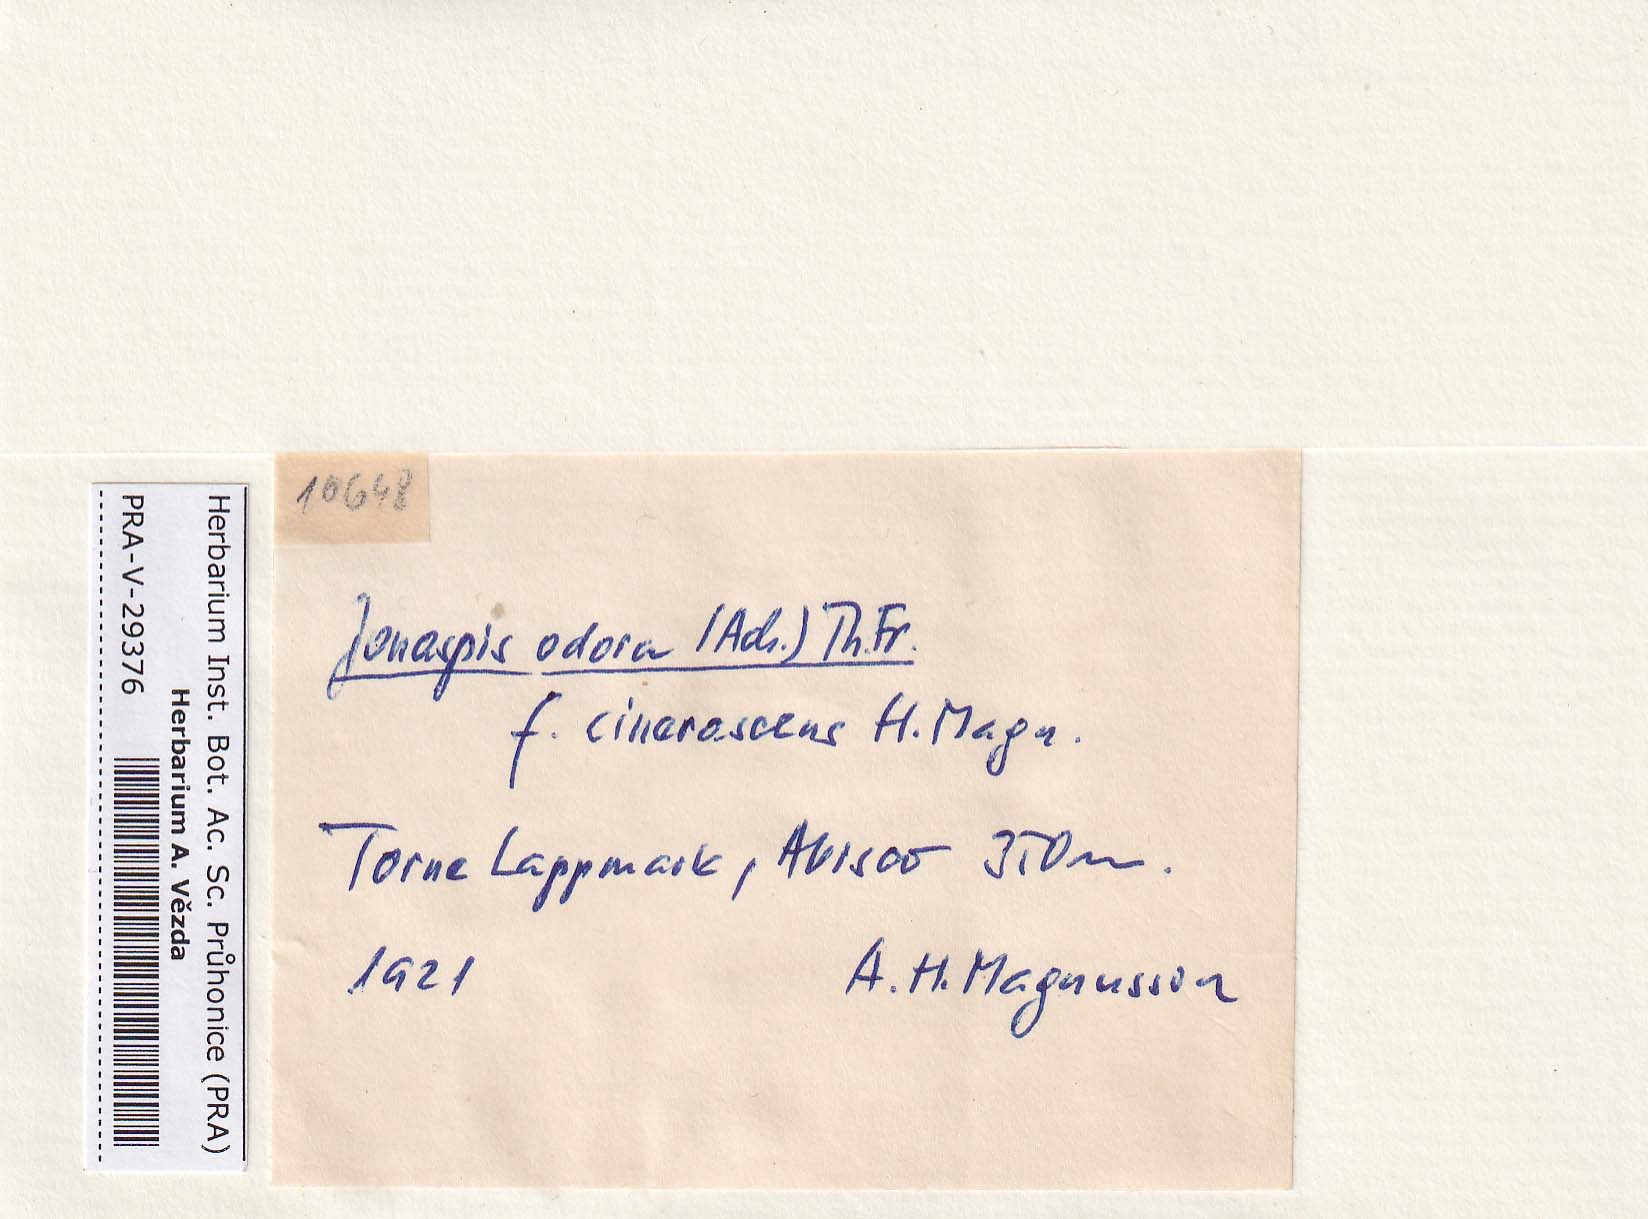 Herbarium Inst. Bot. Ac. Sc. Průhonice (PRA)
Herbarium A. Vězda
PRA-V-29376
10648
Jonaspis odora (Ach.) Th.Fr.
f. cinerascens H.Magn.
Torne Lappmark, Abisco 350m.
1921 A.H.Magnusson